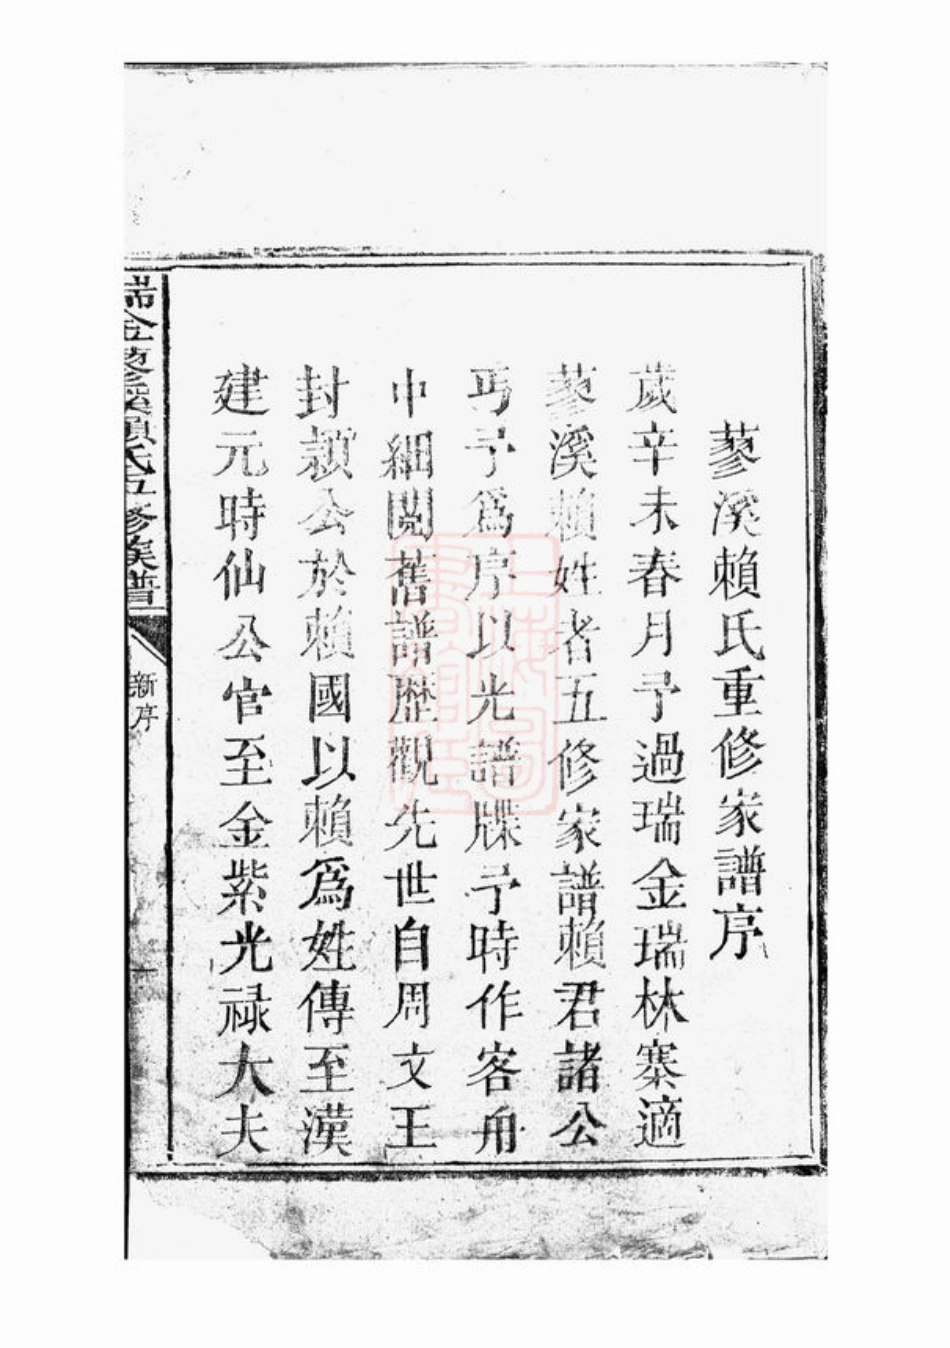 蓼溪賴氏重修家譜序
歲辛未春月予過瑞金瑞林寨適
蓼溪賴姓者五修家譜賴君諸公
丐予爲序以光譜牒予時作客舟
中細閱舊譜歷觀先世自周文王
封潁公於賴國以賴爲姓傳至漢
建元時仙公官至金紫光祿大夫
瑞金蓼溪賴氏五修族譜
新序
一